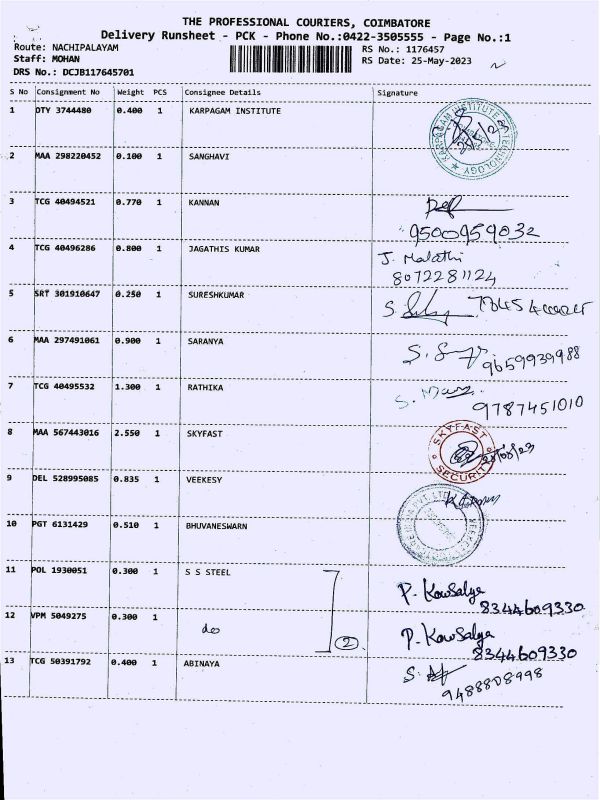 THE PROFESSIONAL COURIERS, COIMBATORE
Delivery Runsheet - PCK - Phone No.:0422-3505555 - Page No.:1
Route: NACHIPALAYAM RS No.: 1176457
Staff: MOHAN RS Date: 25-May-2023
DRS No.: DCJB117645701
S No Consignment No Weight PCS Consignee Details Signature
1 DTY 3744480 0.400 1 KARPAGAM INSTITUTE
KARPAGAM INSTITUTE TECHNOLOGY
2 MAA 298220452 0.100 1 SANGHAVI
3 TCG 40494521 0.770 1 KANNAN
9500959032
4 TCG 40496286 0.800 1 JAGATHIS KUMAR
J. Malathi
8072281124
5 SRT 301910647 0.250 1 SURESHKUMAR
6 MAA 297491061 0.900 1 SARANYA
9659939988
7 TCG 40495532 1.300 1 RATHIKA
9787451010
8 MAA 567443016 2.550 1 SKYFAST
SKYFAST SECURITY
9 DEL 528995085 0.835 1 VEEKESY
10 PGT 6131429 0.510 1 BHUVANESWARN
11 POL 1930051 0.300 1 S S STEEL
P. Kowsalya
8344609330
12 VPM 5049275 0.300 1 do 2
P. Kowsalya
8344609330
13 TCG 50391792 0.400 1 ABINAYA
9488808998